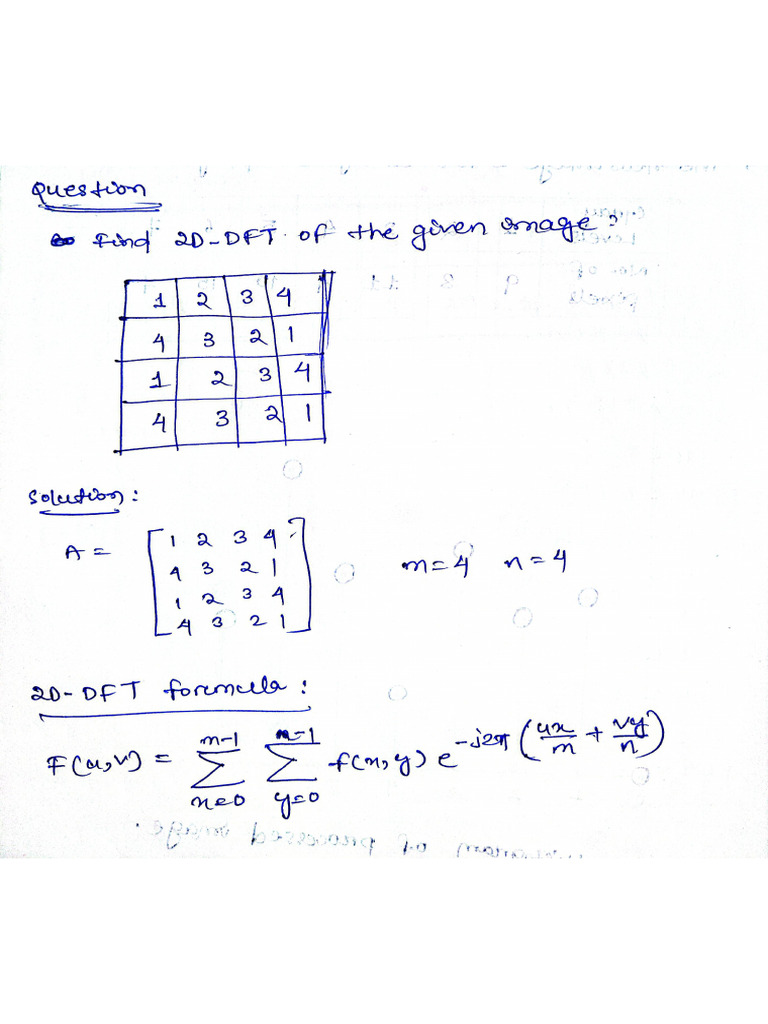 Question
Find 2D-DFT of the given image?
1 2 3 4
4 3 2 1
1 2 3 4
4 3 2 1
Solution:
A = [1 2 3 4
4 3 2 1
1 2 3 4
4 3 2 1] m=4 n=4
2D-DFT foremula:
F(u,v) = m-1 ∑ x=0 n-1 ∑ y=0 f(x,y) e^-j2π (ux/m + vy/n)